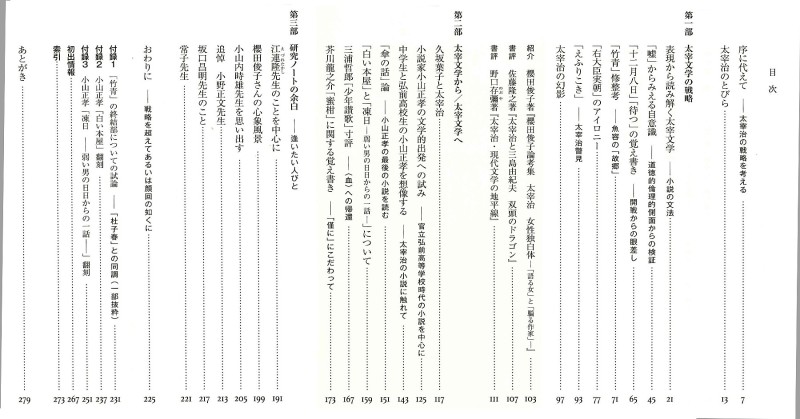 目次
序に代えて――太宰治の戦略を考える 7
太宰治のとびら 13
第一部 太宰文学の戦略
表現から読み解く太宰文学――小説の文法 21
「嘘」からみえる自意識――道徳的倫理的側面からの検証 45
「十二月八日」「待つ」の覚え書き――開戦からの眼差し 65
「竹青」修整考――魚容の「故郷」 71
「右大臣実朝」のアイロニー 77
「えふりこき」――太宰治瞥見 93
太宰治の幻影 97
紹介 櫻田俊子著『櫻田俊子論考集 太宰治 女性独白体―「語る女」と「騙る作家」―』 103
書評 佐藤隆之著『太宰治と三島由紀夫 双頭のドラゴン』 107
書評 野口存彌著『太宰治・現代文学の地平線』 111
第二部 太宰文学から/太宰文学へ
久坂葉子と太宰治 117
小説家小山正孝の文学的出発への試み――官立弘前高等学校時代の小説を中心に 125
中学生と弘前高校生の小山正孝を想像する――太宰治の小説に触れて 143
「傘の話」論――小山正孝の最後の小説を読む 151
「白い本屋」と「凍日―弱い男の日日からの一話―」について 159
三浦哲郎「少年讃歌」寸評――〈血〉への帰還 167
芥川龍之介「蜜柑」に関する覚え書き――「僅に」にこだわって 173
第三部 研究ノートの余白――逢いたい人びと
江連隆先生のことを中心に 191
櫻田俊子さんの心象風景 199
小山内時雄先生を思い出す 205
追悼 小野正文先生 213
坂口昌明先生のこと 217
常子先生 221
おわりに――戦略を超えてあるいは顔回の如くに 225
付録1 「竹青」の終結部についての試論――「杜子春」との同調(一部抜粋) 231
付録2 小山正孝「白い本屋」翻刻 237
付録3 小山正孝「凍日――弱い男の日日からの一話――」翻刻 251
初出情報 267
索引 273
あとがき 279